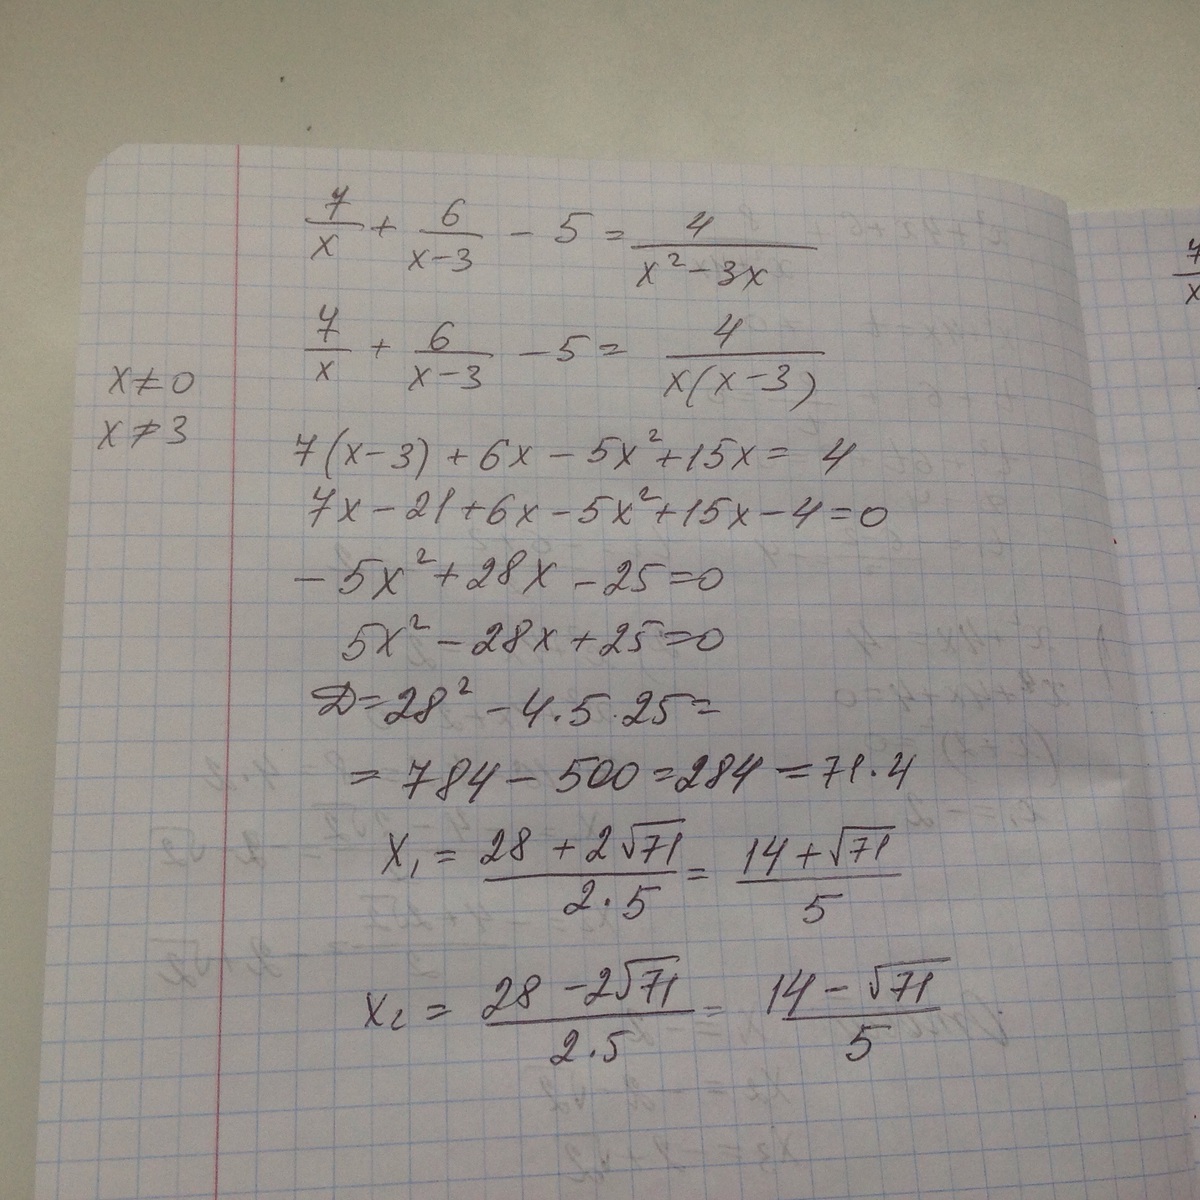 7/x + 6/(x-3) - 5 = 4/(x² - 3x)
7/x + 6/(x-3) - 5 = 4/(x(x-3))
x ≠ 0
x ≠ 3
7(x-3) + 6x - 5x² + 15x = 4
7x - 21 + 6x - 5x² + 15x - 4 = 0
- 5x² + 28x - 25 = 0
5x² - 28x + 25 = 0
D = 28² - 4·5·25 =
= 784 - 500 = 284 = 71·4
x₁ = (28 + 2√71)/(2·5) = (14 + √71)/5
x₂ = (28 - 2√71)/(2·5) = (14 - √71)/5
7/x